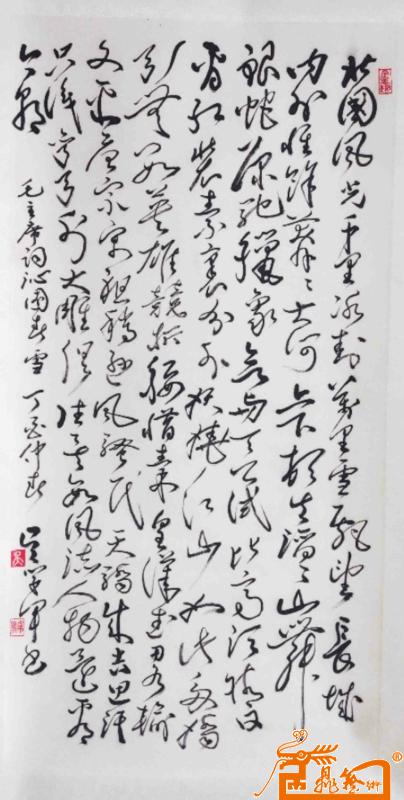 北國风光千里冰封万里雪飘望長城
内外惟馀莽〻大河上下顿失滔〻山舞
银蛇原驰蠟象欲与天公试比高须晴日
看红装素裹分外妖娆江山如此多娇
引无数英雄竞折腰惜秦皇汉武略输
文采唐宗宋祖稍逊风骚一代天骄成吉思汗
只识弯弓射大雕俱往矣数风流人物还看
今朝
毛主席词沁园春雪 丁酉仲春
书